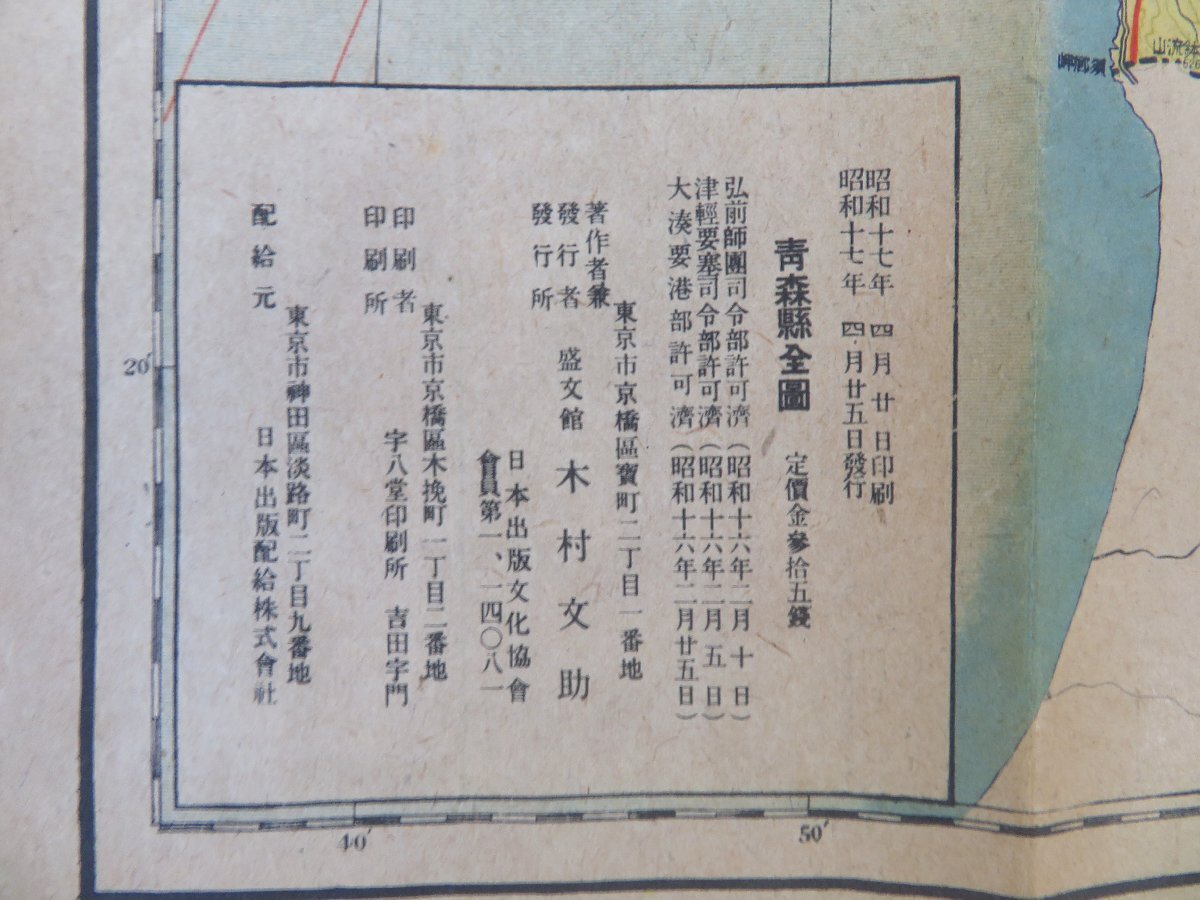 昭和十七年 四月廿日印刷
昭和十七年 四月廿五日發行
靑森縣全圖 定價金參拾五錢
弘前師團司令部許可濟(昭和十六年二月十日)
津輕要塞司令部許可濟(昭和十六年二月五日)
大湊要港部許可濟(昭和十六年二月廿五日)
東京市京橋區寶町二丁目一番地
著作者兼
發行者 盛文館 木村文助
發行所
日本出版文化協會
會員第一、一四〇八一
東京市京橋區木挽町一丁目二番地
印刷者
印刷所 字八堂印刷所 吉田字門
東京市神田區淡路町二丁目九番地
配給元 日本出版配給株式會社
山流鉢
岬鄕須
20′
40′
50′